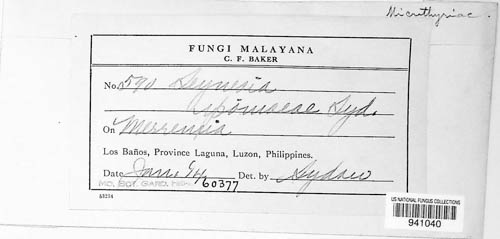 Microthyriac.
FUNGI MALAYANA
C. F. BAKER
No. 590 Seynesia
ipomoeae Syd.
On Merremia
Los Baños, Province Laguna, Luzon, Philippines.
Date Jan. 14 Det. by Sydow
MO. BOT. GARD. HERB. 60377
53254
US NATIONAL FUNGUS COLLECTIONS
941040